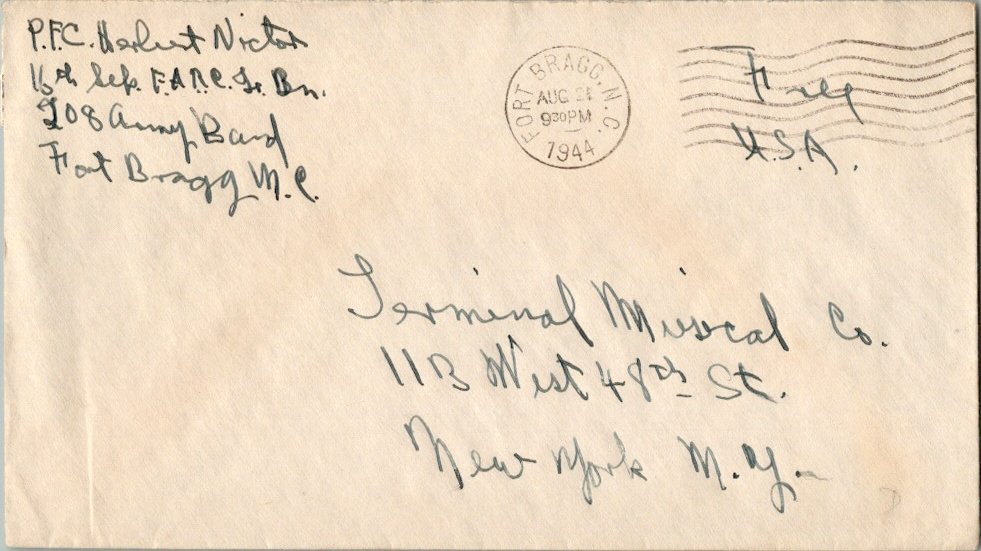 P.F.C. Herbert Nictor
16th Sep. F.A.R.C. Tr. Bn.
208 Army Band
Fort Bragg N.C.
FORT BRAGG, N.C.
AUG 21
9 30 PM
1944
Free
U.S.A.
Terminal Musical Co.
113 West 48th St.
New York N.Y.